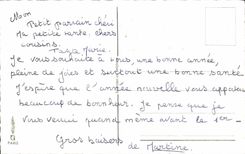 Mon
Petit parrain chéri
Ma petite tante, chers
cousins.
Je vous souhaite à tous, une bonne année,
pleine de joies et surtout une bonne santé
J'espère que l'année nouvelle vous apportera
beaucoup de bonheur. Je pense que je
vous verrai quand même avant le 1er
Gros baisers de
Martine
PARIS